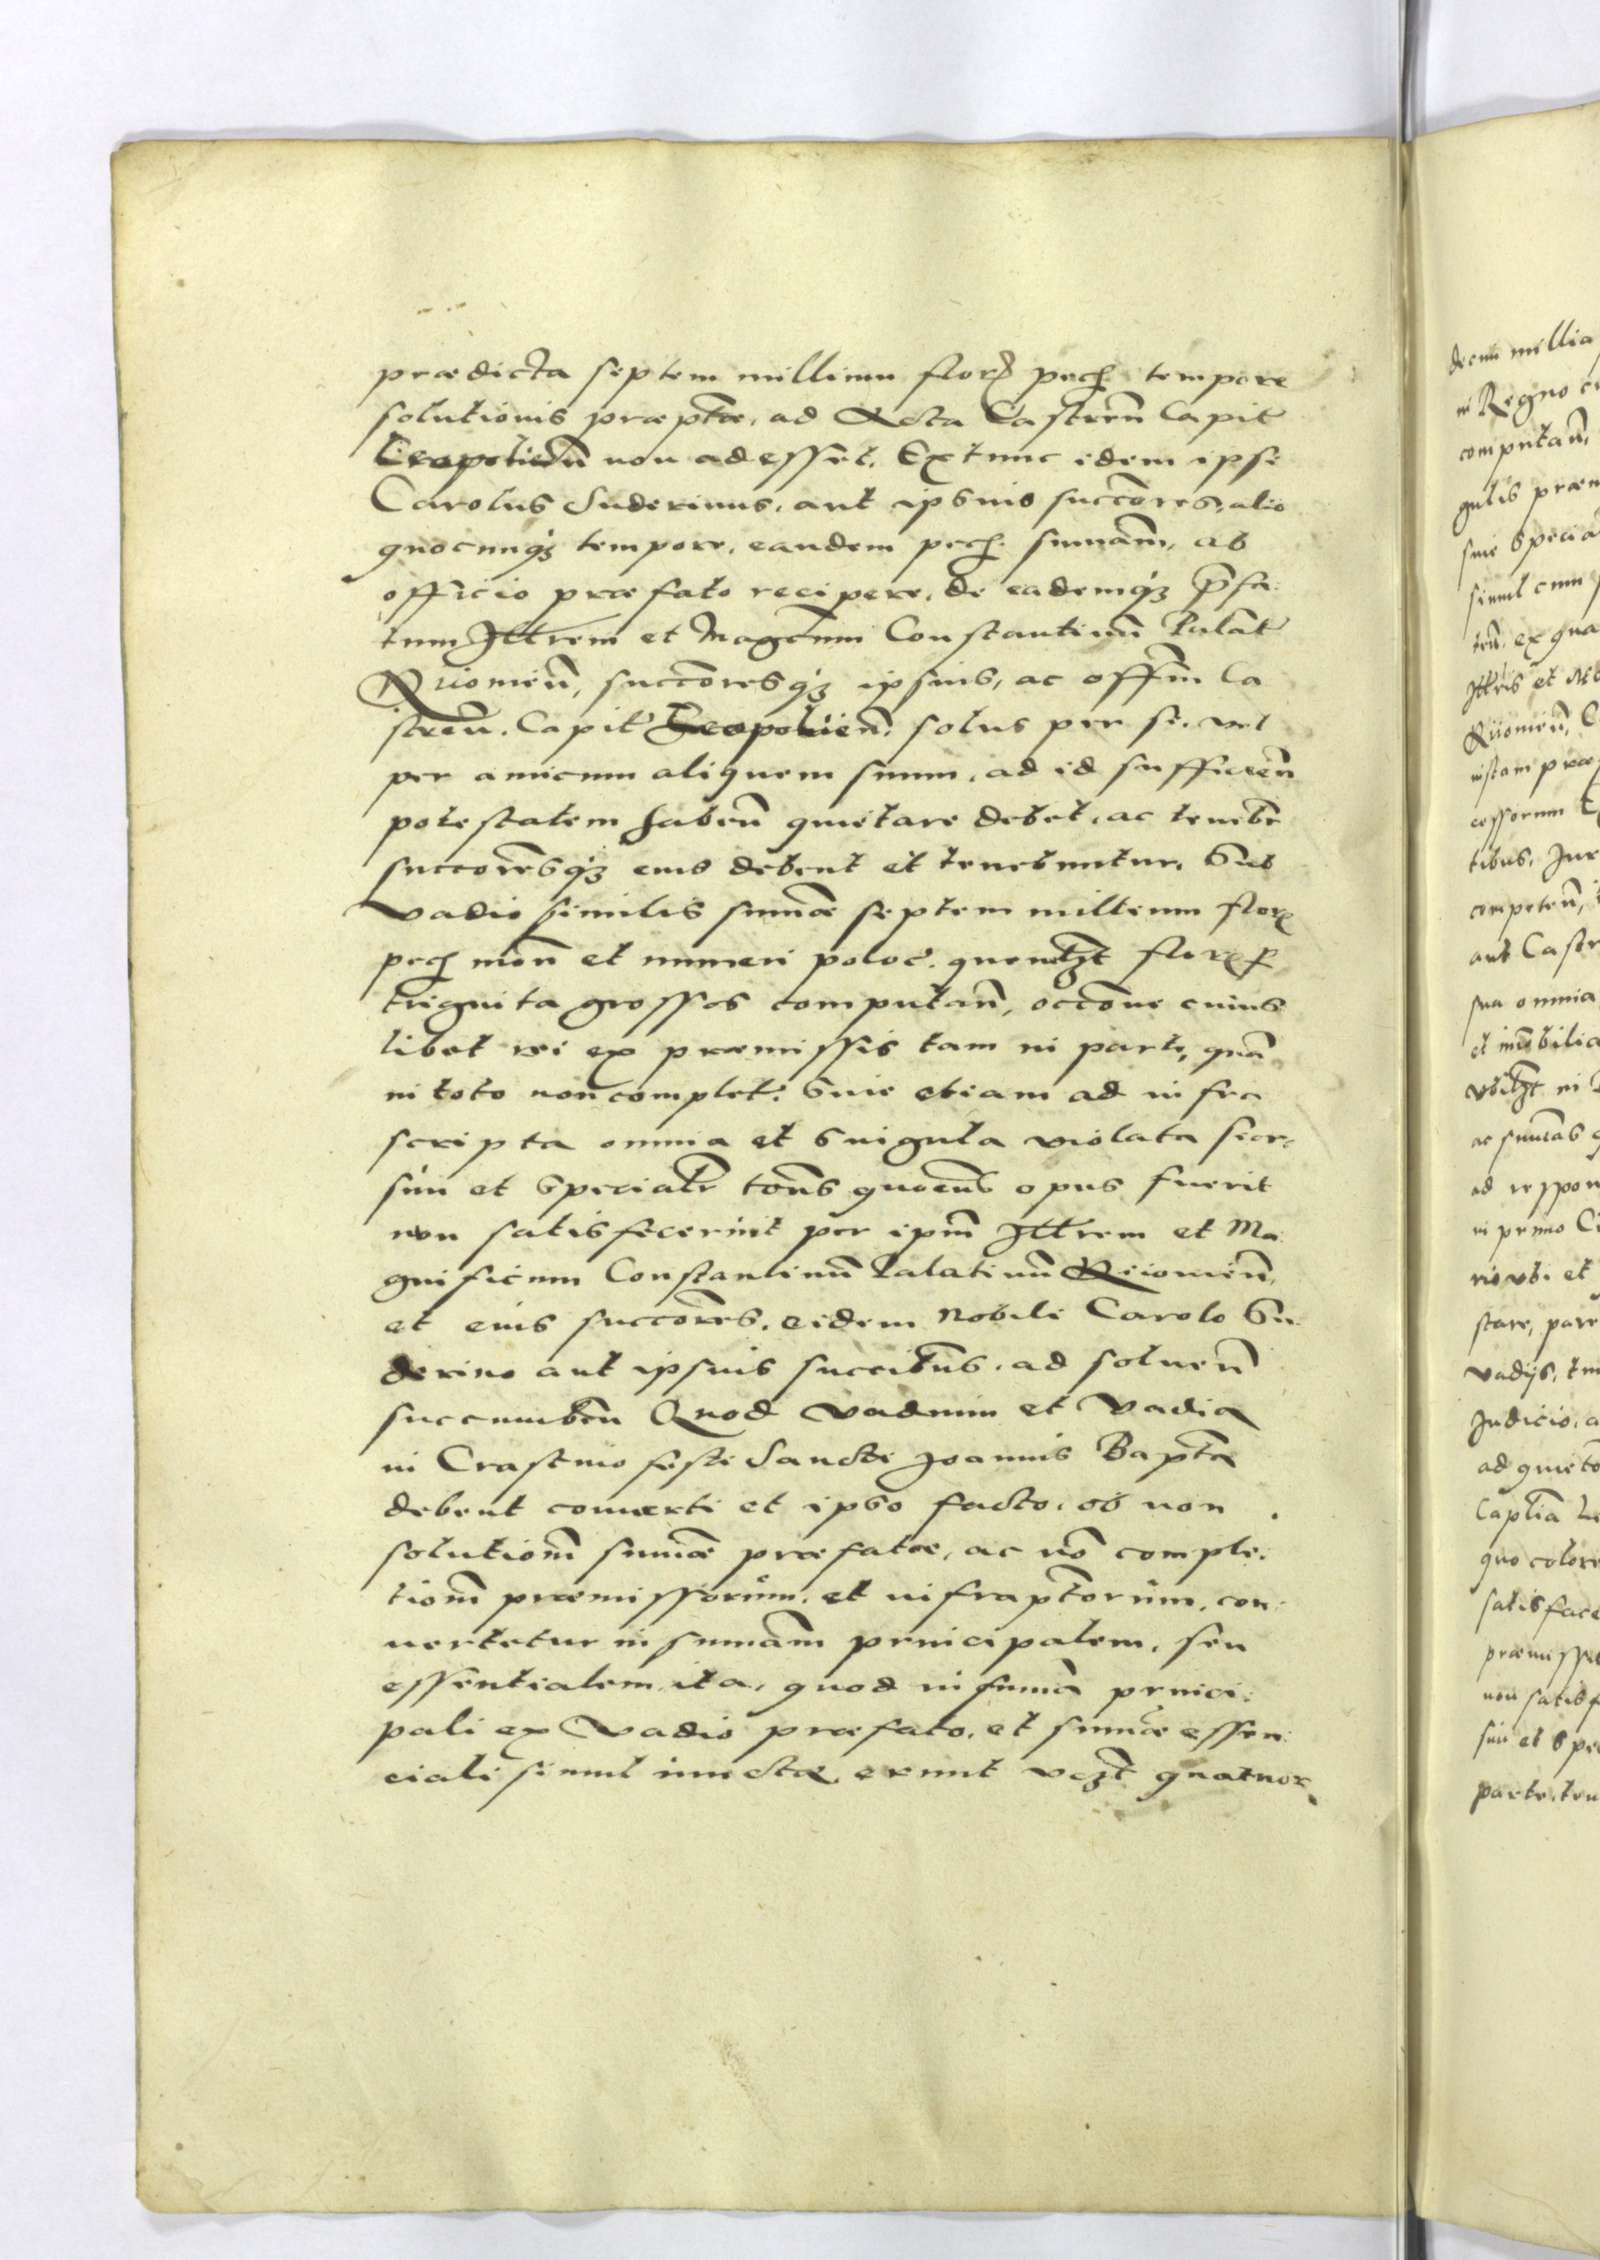 prædicta septem millium flor̃ pecħ tempore
solutionis præptæ, ad Acta Castreñ Capit
Leopolieñ non adessent, Extunc idem ipse
Carolus Suderinus, aut ipsius succores, alio
quocunqȝ tempore, eandem pecħ sum̃am, ab
officio præfato recipere, de eademqȝ p̃fa-
tum Illrem et Magcum Constantinũ Palat
Kiiowieñ, succoresqȝ ipsius, ac off̃m Ca
streñ. Capit Leopolieñ, solus per se, vel
per amicum aliquem suum, ad id sufficieñ
potestatem habeñ quietare debet, ac tenebr
succoresqȝ eius debent et tenebuntur, Sub
vadio similis sum̃æ septem millium flor
pecħ moñ et numeri poloc. quemlȝt flor p
triginta grossos computañ, occõne cuius
libet rei ex præmissis tam in parte, quã
in toto non complet: Siue etiam ad infra
scripta omnia et singula violata seor-
sim et specialr tõns quoẽns opus fuerit
non satisfecerint per ipm̃ Illrem et Ma-
gnificum Constantinũ Palatinũ Kiiowieñ,
et eius succores, eidem Nobili Carolo Su-
derino aut ipsius succibus, ad soluenñ
succumbeñ Quod vadium et vadia
in Crastino festi Sancti Joannis Baptæ
debent conuerti et ipso facto, ob non
solutiom̃ sum̃æ præfatæ, ac nõ comple-
tiom̃ præmissorum, et infraptorum, con-
uertetur in sum̃am principalem, seu
essentialem, ita, quod in sum̃a princi-
pali ex vadio præfato, et sum̃æ essen-
ciali simul iunctæ erunt vcȝt quatuor
decim millia
in Regno
computañ,
gulis
siue specia
simul cum
ex qua
Illris et
Kiiowieñ,
cessorum
tibus, Jure
competeñ,
aut Castr
sua omnia
et imobilia
vbilȝt in
ac sum̃as
ad respon
in primo
vbi et
stare, pare
vadijs,
Judicio,
ad quieto
quo colore
satisface
præmissi
non satisf
sim et spe
parte,